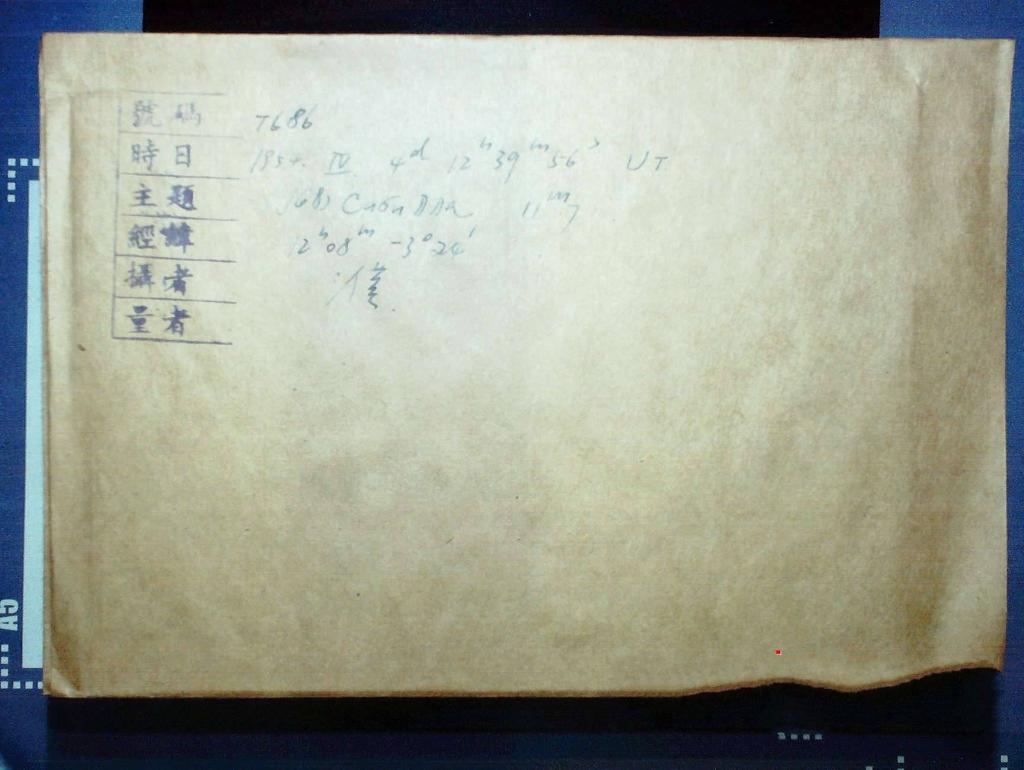 號碼 7686
時日 1954. IV 4d 12h 39m 56s UT
主題 11m7
經緯 12h 08m -3° 24'
攝者
量者
A5